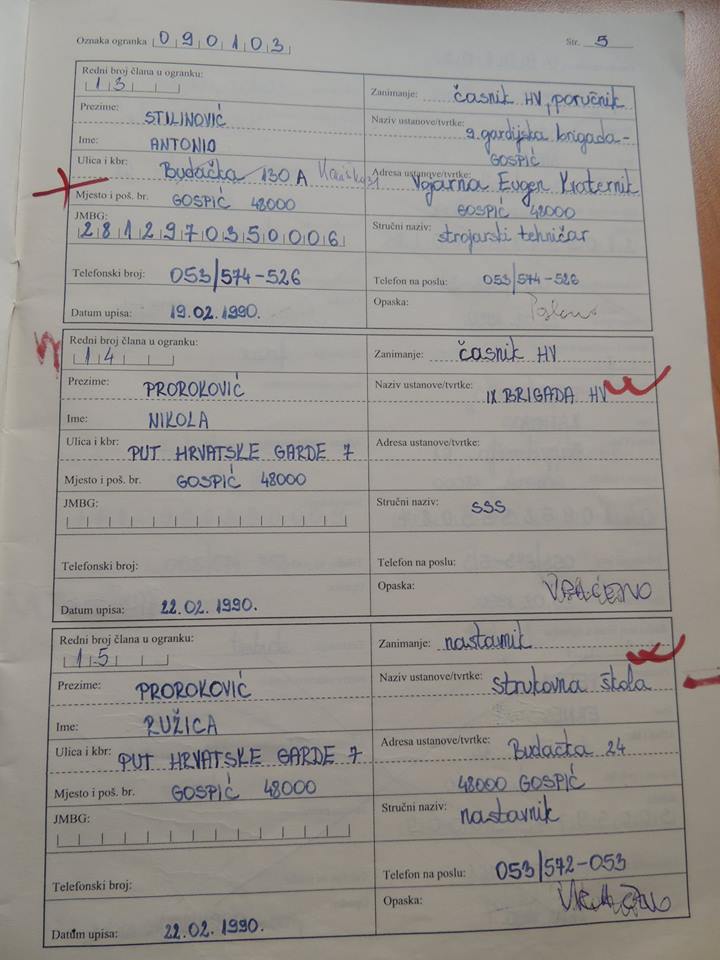 Oznaka ogranka 090103 Str. 5
Redni broj člana u ogranku:
13
Prezime: STILINOVIĆ
Ime: ANTONIO
Ulica i kbr: Budačka 130 A
Mjesto i poš. br. GOSPIĆ 48000
JMBG:
2812970350006
Telefonski broj: 053/574-526
Datum upisa: 19.02.1990.
Zanimanje: časnik HV, poručnik
Naziv ustanove/tvrtke: 9. gardijska brigada-
GOSPIĆ
Adresa ustanove/tvrtke: Vojarna Eugen Kvaternik
GOSPIĆ 48000
Stručni naziv: strojarski tehničar
Telefon na poslu: 053/574-526
Opaska:
Redni broj člana u ogranku:
14
Prezime: PROROKOVIĆ
Ime: NIKOLA
Ulica i kbr: PUT HRVATSKE GARDE 7
Mjesto i poš. br. GOSPIĆ 48000
JMBG:
Telefonski broj:
Datum upisa: 22.02.1990.
Zanimanje: časnik HV
Naziv ustanove/tvrtke: IX BRIGADA HV
Adresa ustanove/tvrtke:
Stručni naziv: SSS
Telefon na poslu:
Opaska: VRAĆENO
Redni broj člana u ogranku:
15
Prezime: PROROKOVIĆ
Ime: RUŽICA
Ulica i kbr: PUT HRVATSKE GARDE 7
Mjesto i poš. br. GOSPIĆ 48000
JMBG:
Telefonski broj:
Datum upisa: 22.02.1990.
Zanimanje: nastavnik
Naziv ustanove/tvrtke: strukovna škola
Adresa ustanove/tvrtke: Budačka 24
48000 GOSPIĆ
Stručni naziv: nastavnik
Telefon na poslu: 053/572-053
Opaska: